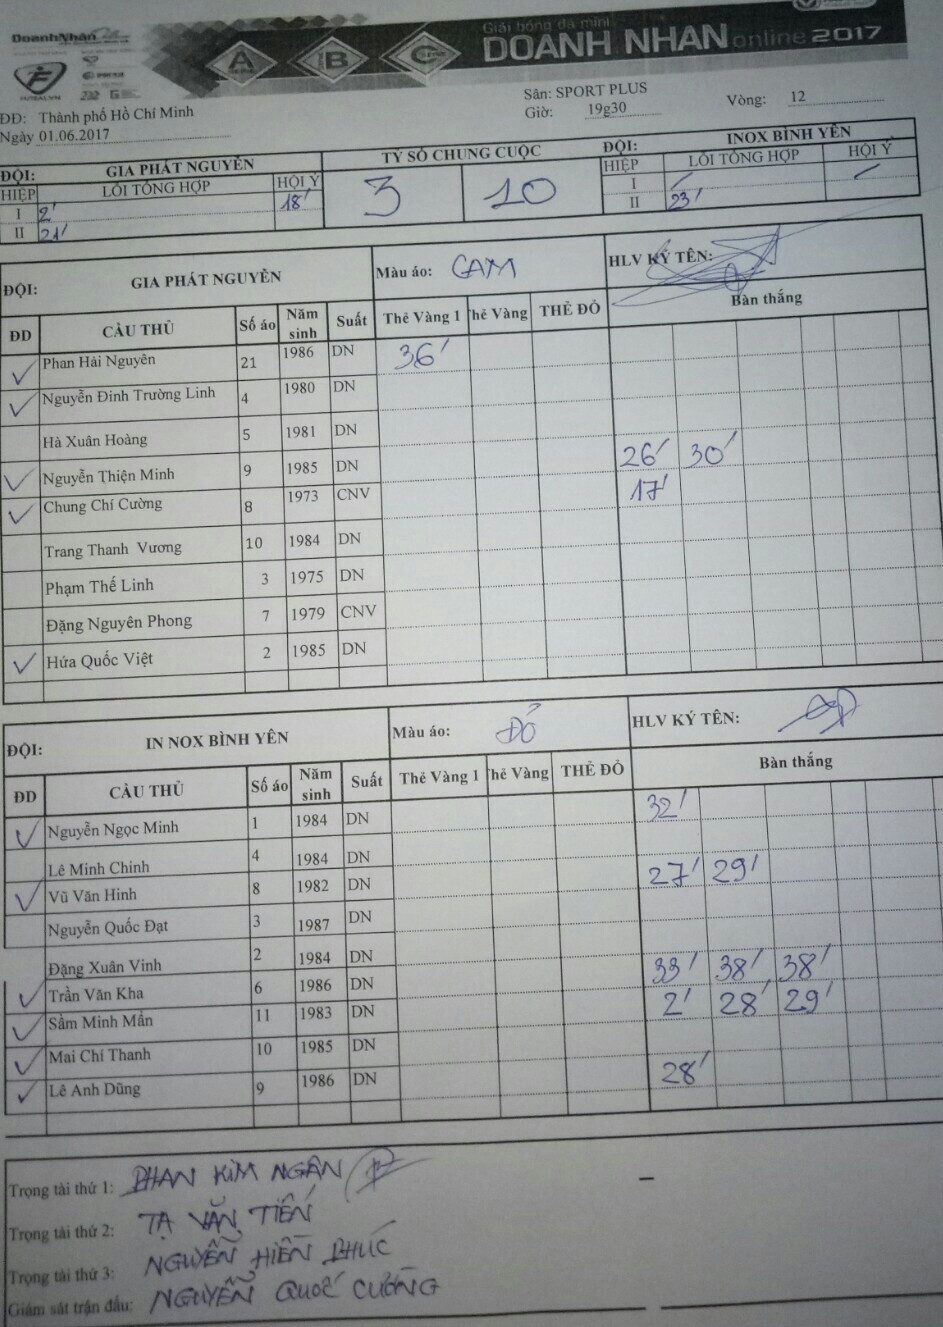 DoanhNhân
Giải bóng đá mini
DOANH NHAN online 2017
A B C
FUTSALVN
ĐĐ: Thành phố Hồ Chí Minh Sân: SPORT PLUS
Ngày 01.06.2017 Giờ: 19g30 Vòng: 12
ĐỘI: GIA PHÁT NGUYÊN TỶ SỐ CHUNG CUỘC ĐỘI: INOX BÌNH YÊN
HIỆP LỖI TỔNG HỢP HỘI Ý HIỆP LỖI TỔNG HỢP HỘI Ý
I 2' 18' 3 10 I / /
II 21' II 23'
ĐỘI: GIA PHÁT NGUYÊN Màu áo: CAM HLV KÝ TÊN:
ĐD CẦU THỦ Số áo Năm sinh Suất Thẻ Vàng 1 Thẻ Vàng THẺ ĐỎ Bàn thắng
✓ Phan Hải Nguyên 21 1986 DN 36'
✓ Nguyễn Đình Trường Linh 4 1980 DN
Hà Xuân Hoàng 5 1981 DN
✓ Nguyễn Thiện Minh 9 1985 DN 26' 30'
✓ Chung Chí Cường 8 1973 CNV 17'
Trang Thanh Vương 10 1984 DN
Phạm Thế Linh 3 1975 DN
Đặng Nguyên Phong 7 1979 CNV
✓ Hứa Quốc Việt 2 1985 DN
ĐỘI: IN NOX BÌNH YÊN Màu áo: ĐỎ HLV KÝ TÊN:
ĐD CẦU THỦ Số áo Năm sinh Suất Thẻ Vàng 1 Thẻ Vàng THẺ ĐỎ Bàn thắng
✓ Nguyễn Ngọc Minh 1 1984 DN 32'
Lê Minh Chinh 4 1984 DN
✓ Vũ Văn Hinh 8 1982 DN 27' 29'
Nguyễn Quốc Đạt 3 1987 DN
Đặng Xuân Vinh 2 1984 DN
✓ Trần Văn Kha 6 1986 DN 33' 38' 38'
✓ Sầm Minh Mẩn 11 1983 DN 2' 28' 29'
✓ Mai Chí Thanh 10 1985 DN
✓ Lê Anh Dũng 9 1986 DN 28'
Trọng tài thứ 1: PHAN KIM NGÂN
Trọng tài thứ 2: TẠ VĂN TIẾN
Trọng tài thứ 3: NGUYỄN HIỀN PHÚC
Giám sát trận đấu: NGUYỄN QUỐC CƯỜNG